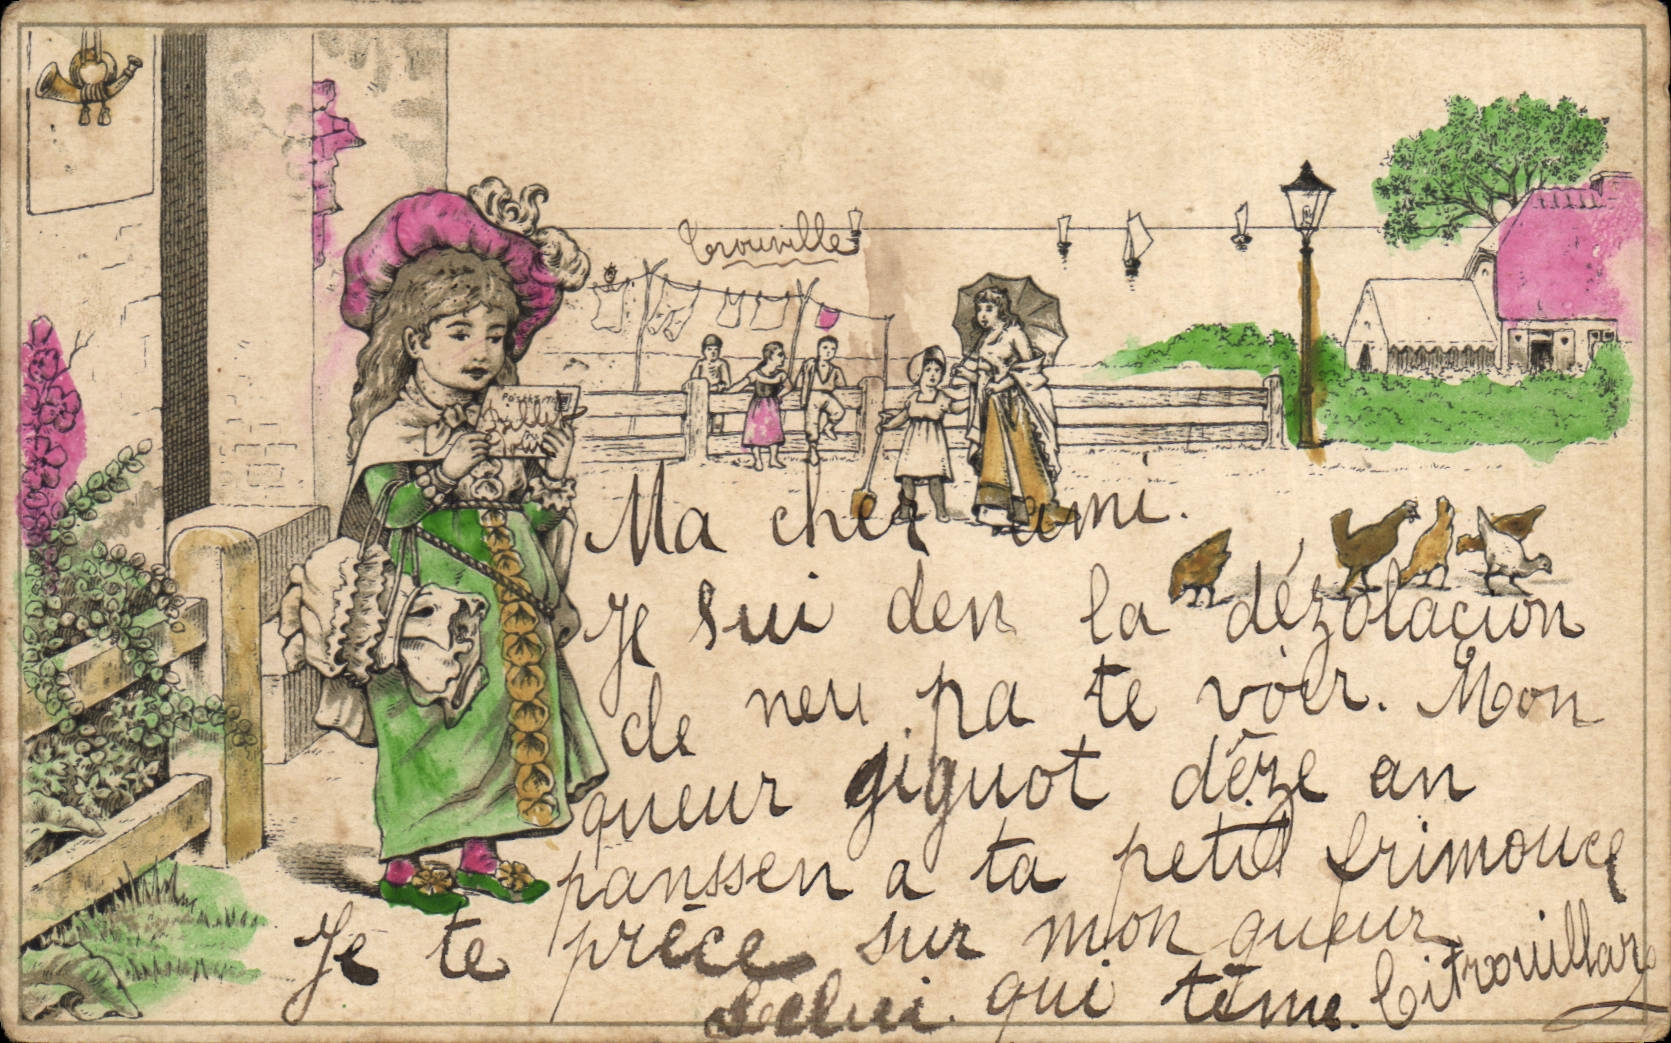 Trouville
Ma cher ami.
Je sui den la dézolaçion
de neu pa te voir. Mon
queur gignot dêze an
panssen a ta petit frimouce
Je te prêce sur mon queur
Selui qui têmme. Citrouillard